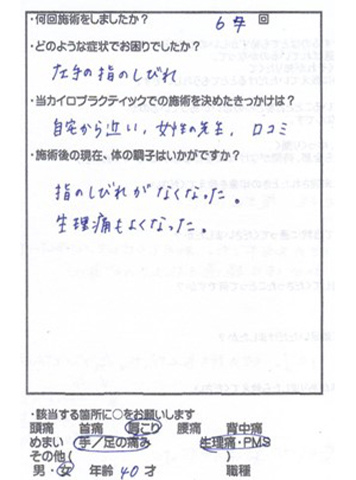 ・何回施術をしましたか？ 6回
・どのような症状でお困りでしたか？
左手の指のしびれ
・当カイロプラクティックでの施術を決めたきっかけは？
自宅から近い、女性の先生、口コミ
・施術後の現在、体の調子はいかがですか？
指のしびれがなくなった。
生理痛もよくなった。
・該当する箇所に○をお願いします
頭痛 首痛 肩こり 腰痛 背中痛
めまい 手／足の痛み 生理痛・PMS
その他( )
男・女 年齢 40才 職種